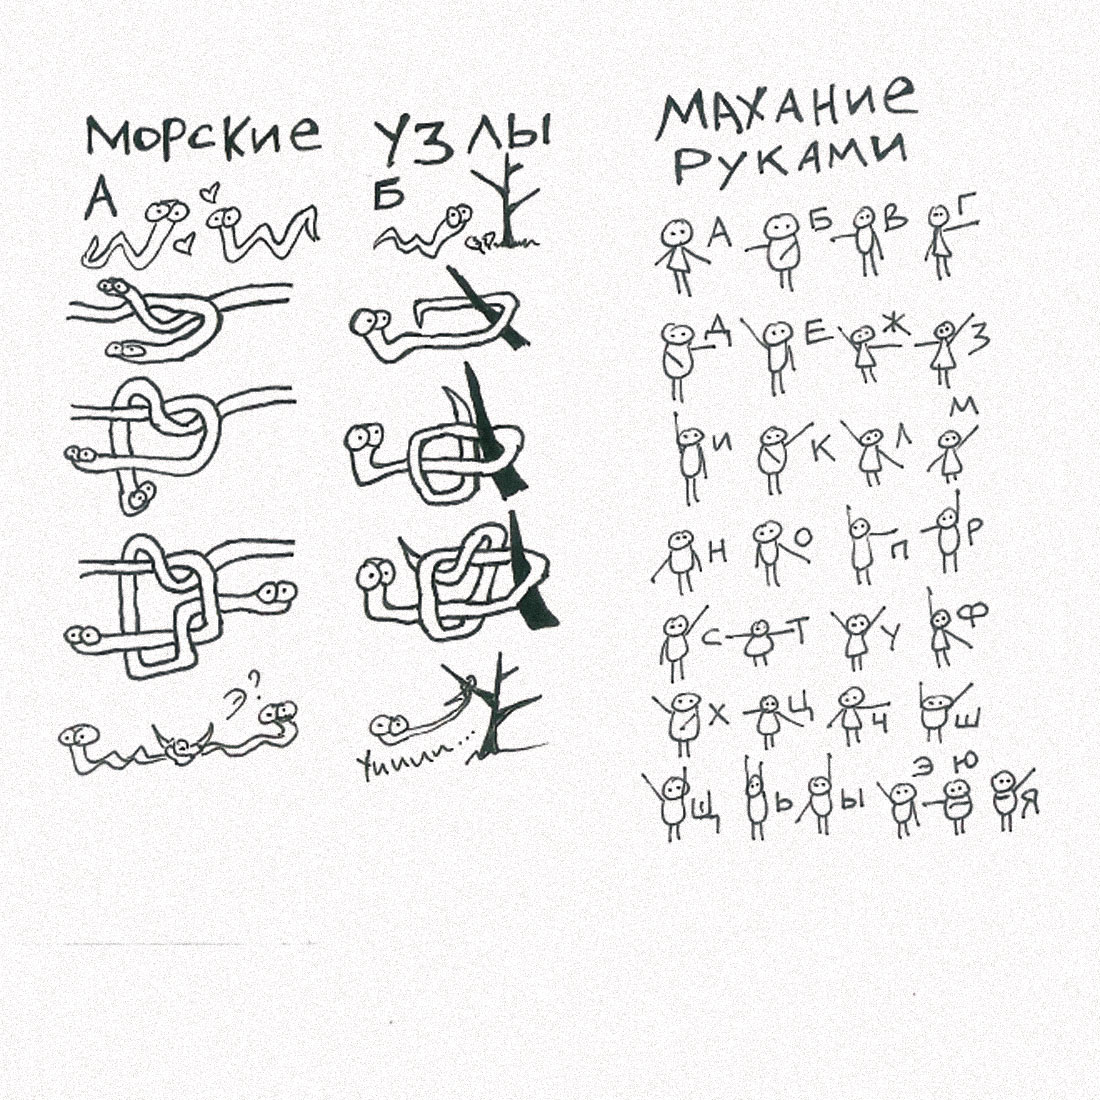 МОРСКИЕ УЗЛЫ
А
Б
Э?
Уииии...
МАХАНИЕ
РУКАМИ
А Б В Г
Д Е Ж З
И К Л М
Н О П Р
С Т У Ф
Х Ц Ч Ш
Щ Ь Ы Э Ю Я